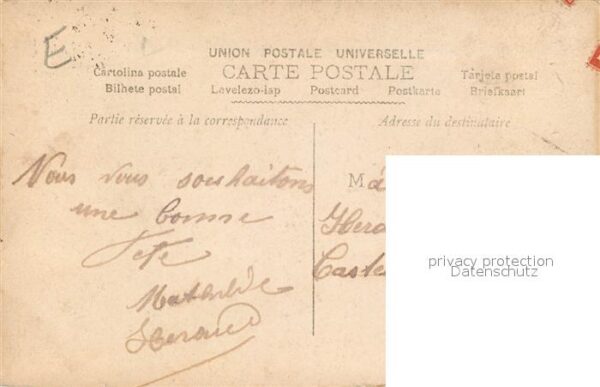 E
UNION POSTALE UNIVERSELLE
CARTE POSTALE
Cartolina postale
Tarjeta postal
Bilhete postal
Levelezo-lap
Postcard
Postkarte
Briefkaart
Partie réservée à la correspondance
Adresse du destinataire
Nous vous souhaitons
une bonne
Fete
Mathilde
Heraud
M
Hera
Caste
privacy protection
Datenschutz